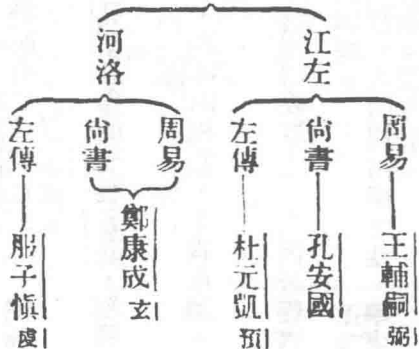 江左
周易
王輔嗣 弼
尙書
孔安國
左傳
杜元凱 預
河洛
周易
尙書
鄭康成 玄
左傳
服子愼 虔